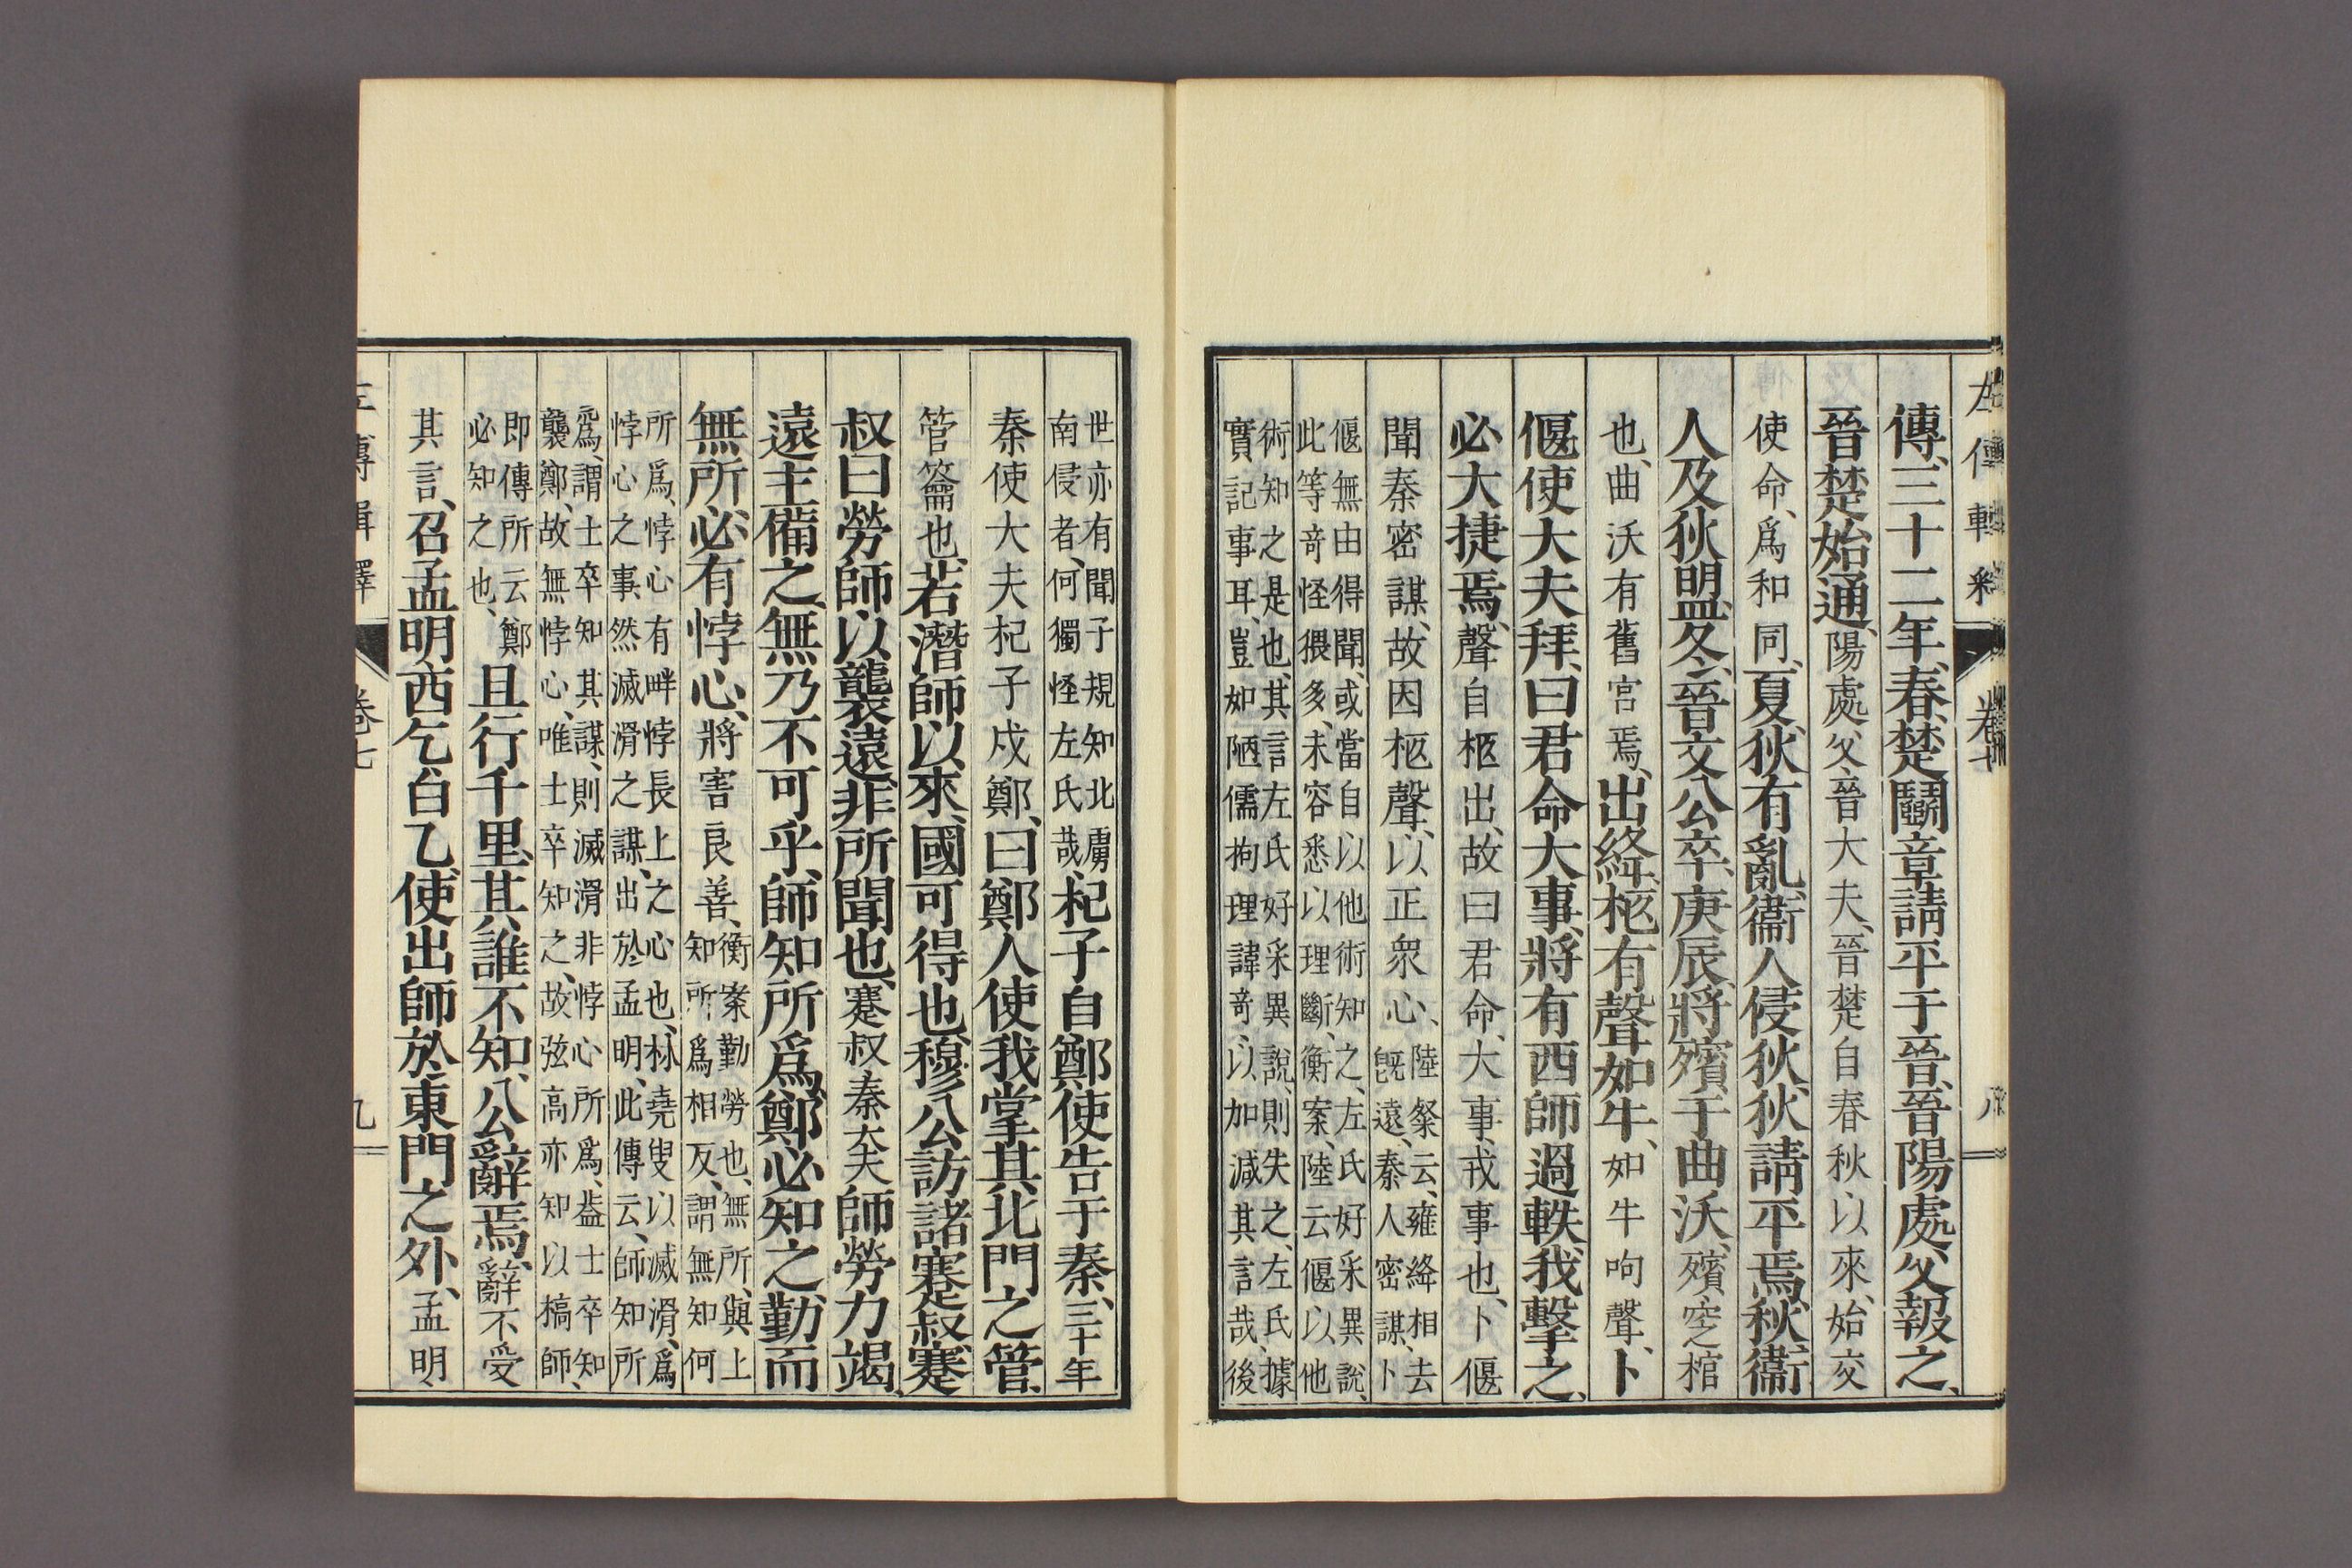 傳、三十二年、春、楚鬭章請平于晉、晉陽處父報之、
晉楚始通、陽處父、晉大夫、晉楚自春秋以來、始交
使命、爲和同、夏、狄有亂、衞人侵狄、狄請平焉、秋、衞
人及狄盟、冬、晉文公卒、庚辰、將殯于曲沃、殯、窆棺
也、曲沃有舊宮焉、出絳、柩有聲如牛、如牛呴聲、卜
偃使大夫拜、曰君命大事、將有西師過軼我、擊之、
必大捷焉、聲自柩出、故曰君命、大事、戎事也、卜偃
聞秦密謀、故因柩聲、以正衆心、陸粲云、雍絳相去
旣遠、秦人密謀、卜
偃無由得聞、或當自以他術知之、左氏好采異說、
此等奇怪猥多、未容悉以理斷、衡案、陸云偃以他
術知之、是也、其言左氏好采異說、則失之、左氏據
實記事耳、豈如陋儒拘理諱奇、以加減其言哉、後
世亦有聞子規知北虜
南侵者、何獨怪左氏哉、杞子自鄭使告于秦、三十年
秦使大夫杞子戍鄭、曰鄭人使我掌其北門之管、
管籥也、若潛師以來、國可得也、穆公訪諸蹇叔、蹇
叔曰勞師以襲遠、非所聞也、蹇叔秦大夫師勞力竭、
遠主備之、無乃不可乎、師知所爲、鄭必知之、勤而
無所、必有悖心、將害良善、衡案勤勞也、無所、與上
知所爲相反、謂無知何
所爲、悖心有畔悖長上之心也、林堯叟以滅滑、爲
悖心之事、然滅滑之謀、出於孟明、此傳云、師知所
爲、謂士卒知其謀、則滅滑非悖心所爲、葢士卒知
襲鄭、故無悖心、唯士卒知之、故弦高亦知以槁師、
即傳所云鄭
必知之也、且行千里、其誰不知、公辭焉、辭不受
其言、召孟明、西乞、白乙、使出師於東門之外、孟明、
卷七